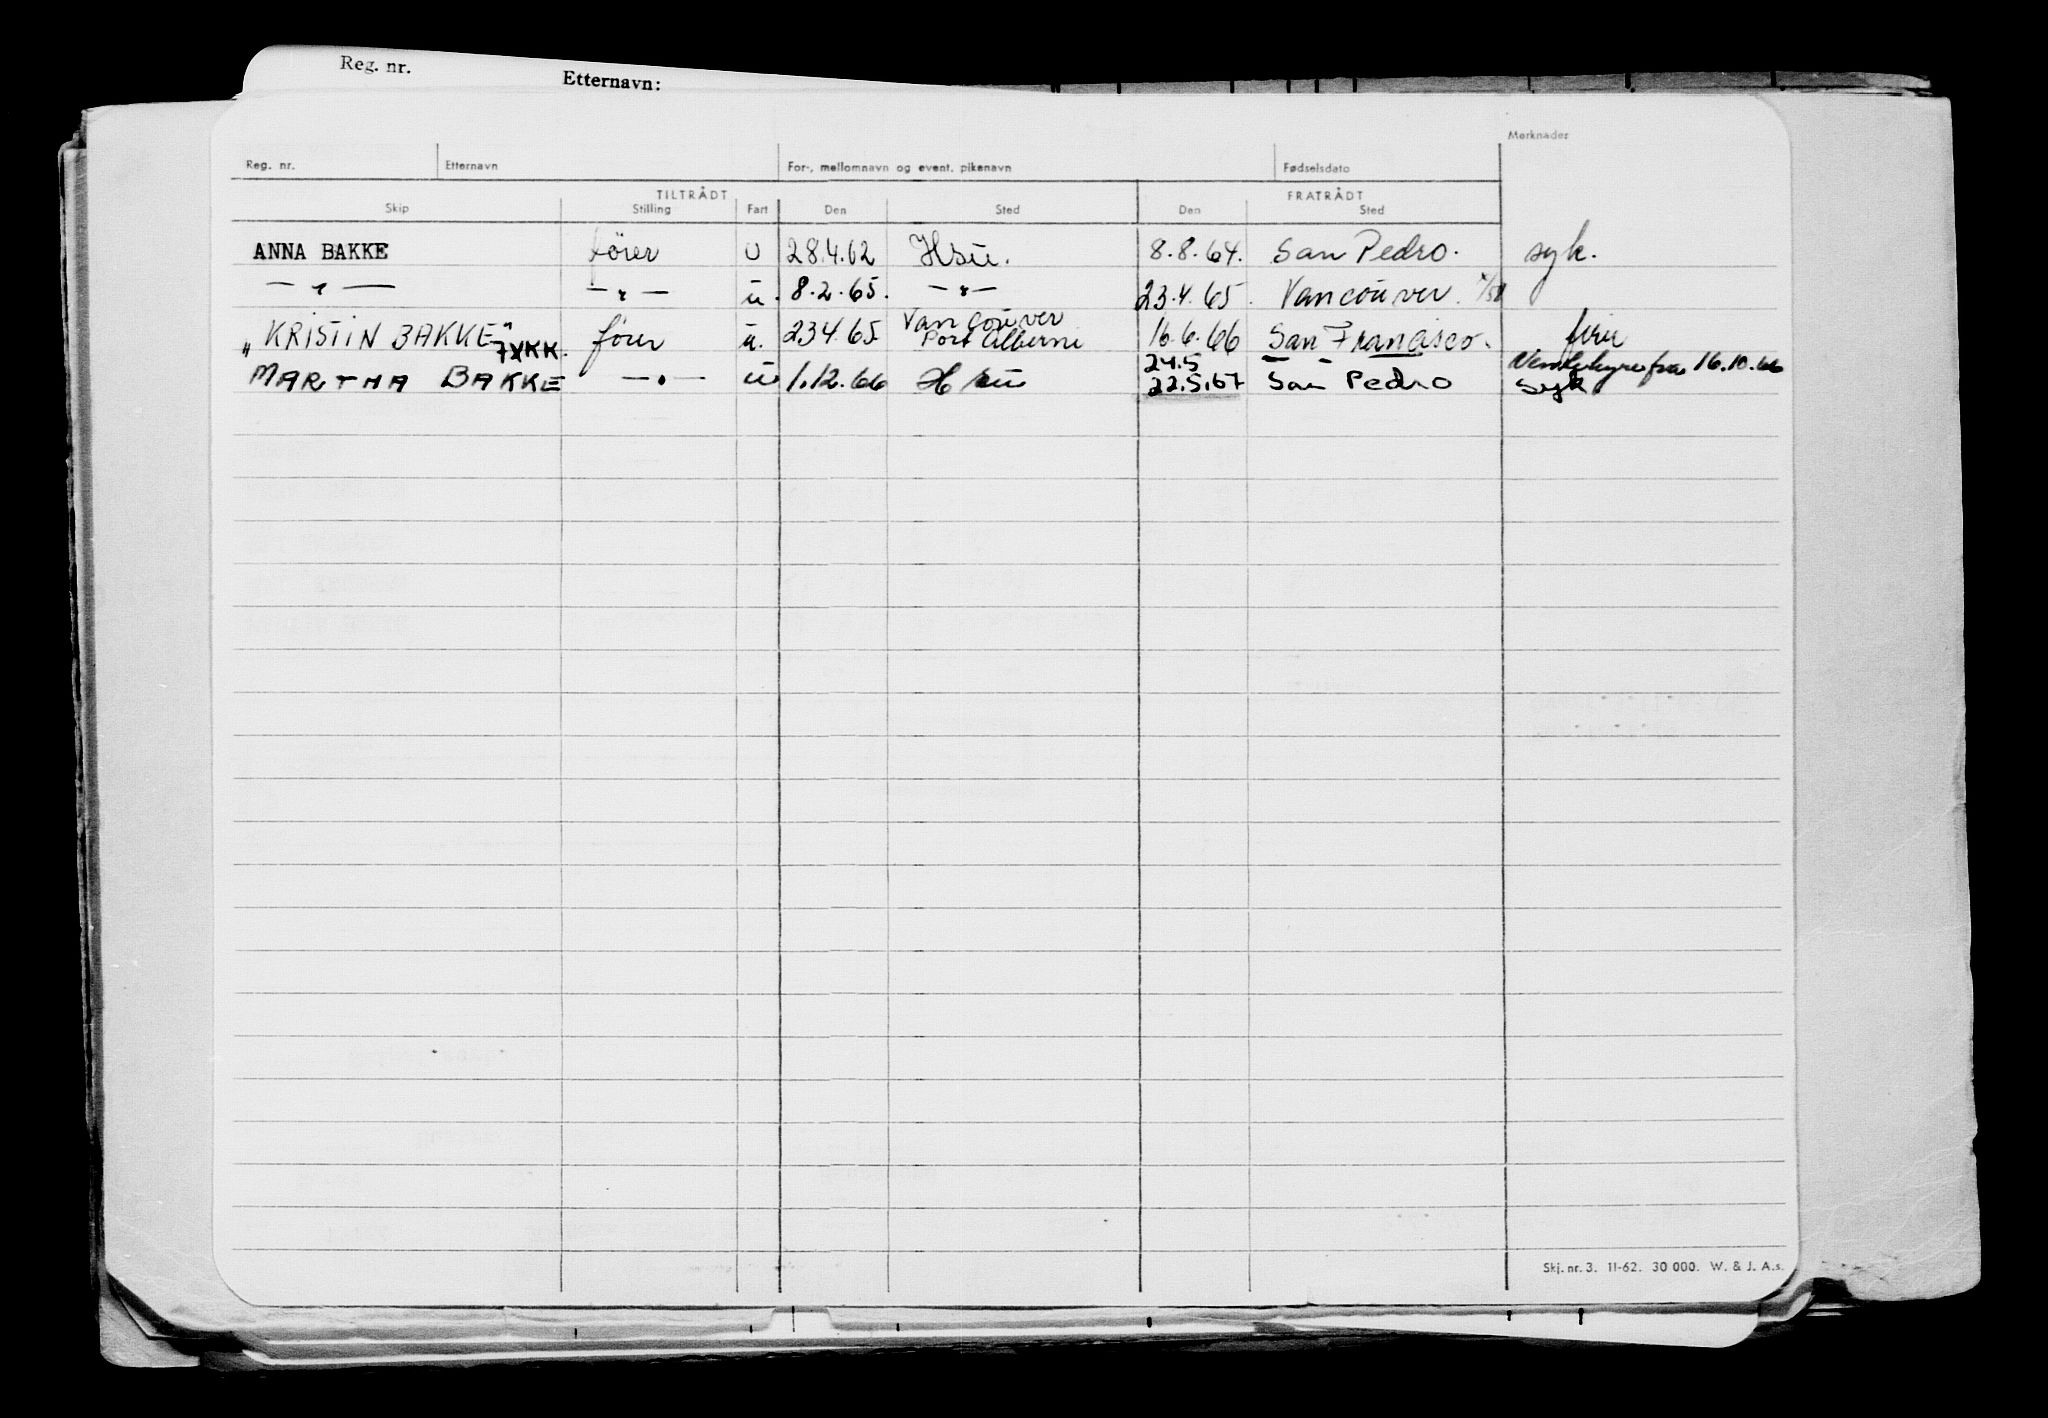 Reg. nr. Etternavn:
Merknader
Reg. nr. Etternavn For-, mellomnavn og event. pikenavn Fødselsdato
TILTRÅDT FRATRÅDT
Skip Stilling Fart Den Sted Den Sted
ANNA BAKKE fører U 28.4.62 Hsu. 8.8.64. San Pedro. syk.
— „ — — „ — u. 8.2.65. — „ — 23.4.65. Vancouver.
Vancouver
„KRISTIN BAKKE" fører u. 23.4.65 Port Alberni 16.6.66 San Francisco. ferie
7XKK. 24.5 — „ — Ventehyre fra 16.10.66
MARTHA BAKKE — „ — u 1.12.66 22.5.67 San Pedro syk
Skj. nr. 3. 11-62. 30 000. W. & J. A.s.